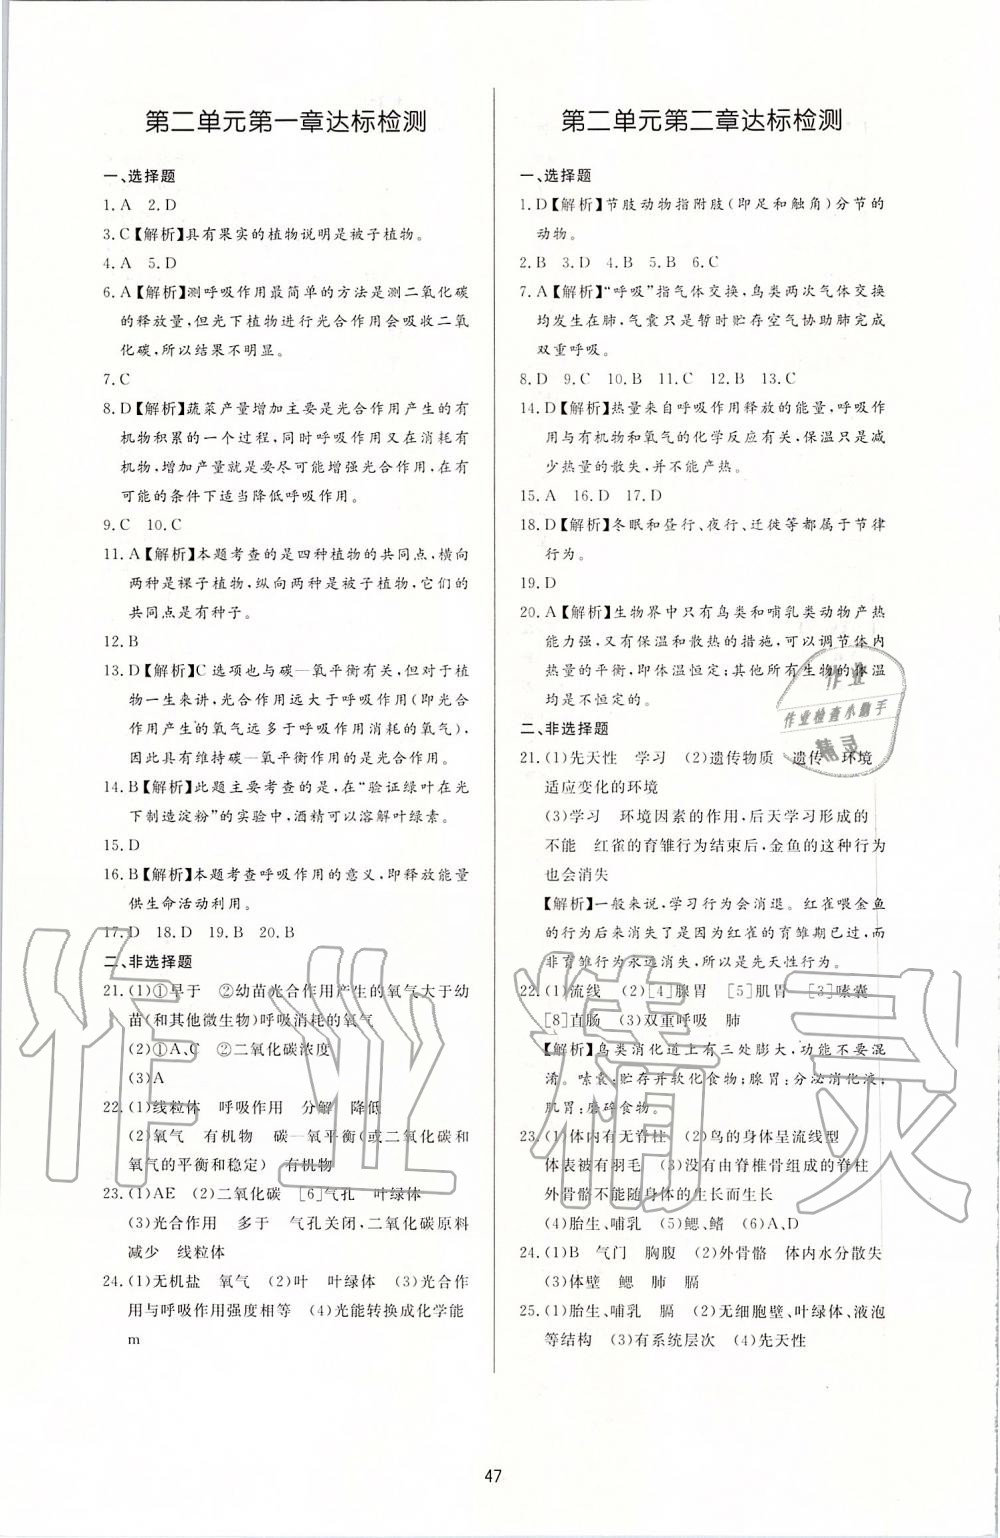 第二单元第一章达标检测
一、选择题
1. A  2. D
3. C【解析】具有果实的植物说明是被子植物。
4. A  5. D
6. A【解析】测呼吸作用最简单的方法是测二氧化碳
的释放量,但光下植物进行光合作用会吸收二氧
化碳,所以结果不明显。
7. C
8. D【解析】蔬菜产量增加主要是光合作用产生的有
机物积累的一个过程,同时呼吸作用又在消耗有
机物,增加产量就是要尽可能增强光合作用,在有
可能的条件下适当降低呼吸作用。
9. C  10. C
11. A【解析】本题考查的是四种植物的共同点,横向
两种是裸子植物,纵向两种是被子植物,它们的
共同点是有种子。
12. B
13. D【解析】C 选项也与碳—氧平衡有关,但对于植
物一生来讲,光合作用远大于呼吸作用(即光合
作用产生的氧气远多于呼吸作用消耗的氧气),
因此具有维持碳—氧平衡作用的意义。
14. B【解析】此题主要考查的是,在“验证绿叶在光
下制造淀粉”的实验中,酒精可以溶解叶绿素。
15. D
16. B【解析】本题考查呼吸作用的意义,即释放能量
供生命活动利用。
17. D  18. D  19. B  20. B
二、非选择题
21. (1)①早于  ②幼苗光合作用产生的氧气大于幼
苗(和其他微生物)呼吸消耗的氧气
(2)①A、C  ②二氧化碳浓度
(3)A
22. (1)线粒体  呼吸作用  分解  降低
(2)氧气  有机物  碳—氧平衡(或二氧化碳和
氧气的平衡和稳定)  有机物
23. (1)AE  (2)二氧化碳  [6]气孔  叶绿体
(3)光合作用  多于  气孔关闭,二氧化碳原料
减少  线粒体
24. (1)无机盐  氧气  (2)叶  叶绿体  (3)光合作
用与呼吸作用强度相等  (4)光能转换成化学能
m
第二单元第二章达标检测
一、选择题
1. D【解析】节肢动物指附肢(即足和触角)分节的
动物。
2. B  3. D  4. B  5. B  6. C
7. A【解析】“呼吸”指气体交换,鸟类两次气体交换
均发生在肺,气囊只是暂时贮存空气协助肺完成
双重呼吸。
8. D  9. C  10. B  11. C  12. B  13. C
14. D【解析】热量来自呼吸作用释放的能量,呼吸作
用与有机物和氧气的化学反应有关,保温只是减
少热量的散失,并不能产热。
15. A  16. D  17. D
18. D【解析】冬眠和昼行、夜行、迁徙等都属于节律
行为。
19. D
20. A【解析】生物界中只有鸟类和哺乳类动物产热
能力强,又有保温和散热的措施,可以调节体内
热量的平衡,即体温恒定;其他所有生物的体温
均是不恒定的。
二、非选择题
21. (1)先天性  学习  (2)遗传物质  遗传  环境
适应变化的环境
(3)学习  环境因素的作用,后天学习形成的
不能  红雀的育雏行为结束后,金鱼的这种行为
也会消失
【解析】一般来说,学习行为会消退。红雀喂金鱼
的行为后来消失了是因为红雀的育雏期已过,而
非育雏行为永远消失,所以这是先天性行为。
22. (1)流线  (2)[4]腺胃  [5]肌胃  [3]嗉囊
[8]直肠  (3)双重呼吸  肺
【解析】鸟类消化道上有三处膨大,功能不要混
淆。嗉囊:贮存并软化食物;腺胃:分泌消化液,
肌胃:磨碎食物。
23. (1)体内有无脊柱  (2)鸟的身体呈流线型
体表被有羽毛  (3)没有由脊椎骨组成的脊柱
外骨骼不能随身体的生长而生长
(4)胎生、哺乳  (5)鳃、鳍  (6)A、D
24. (1)B  气门  胸腹  (2)外骨骼  体内水分散失
(3)体壁  鳃  肺  膈
25. (1)胎生、哺乳  膈  (2)无细胞壁、叶绿体、液泡
等结构  (3)有系统层次  (4)先天性
作业
作业检查小助手
精灵
作业精灵
47